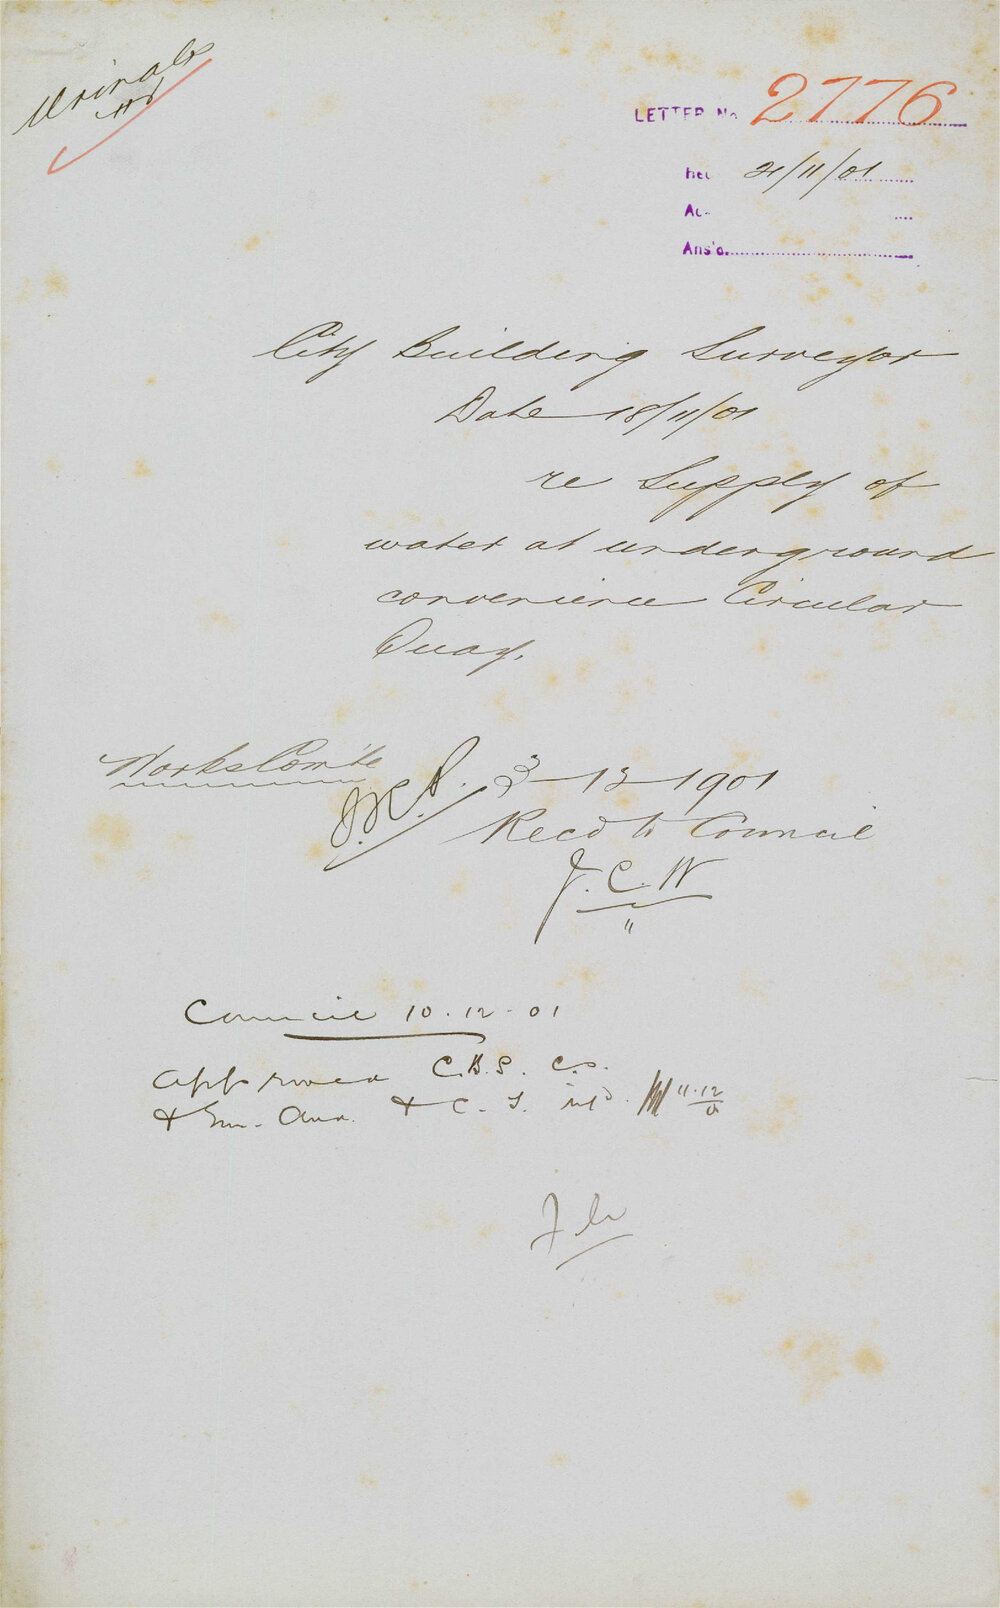 Urinals
LETTER No 2776
Rec 21/11/01
Ac
Ans'd.
City Building Surveyor
Date 18/11/01
re Supply of
water at underground
convenience Circular
Quay.
Works Com'tee
3-12-1901
Recd to Council
J. C. W
"
Council 10.12.01
Approved C.B.S. C.S.
& C. S. inf'd. 11.12
01